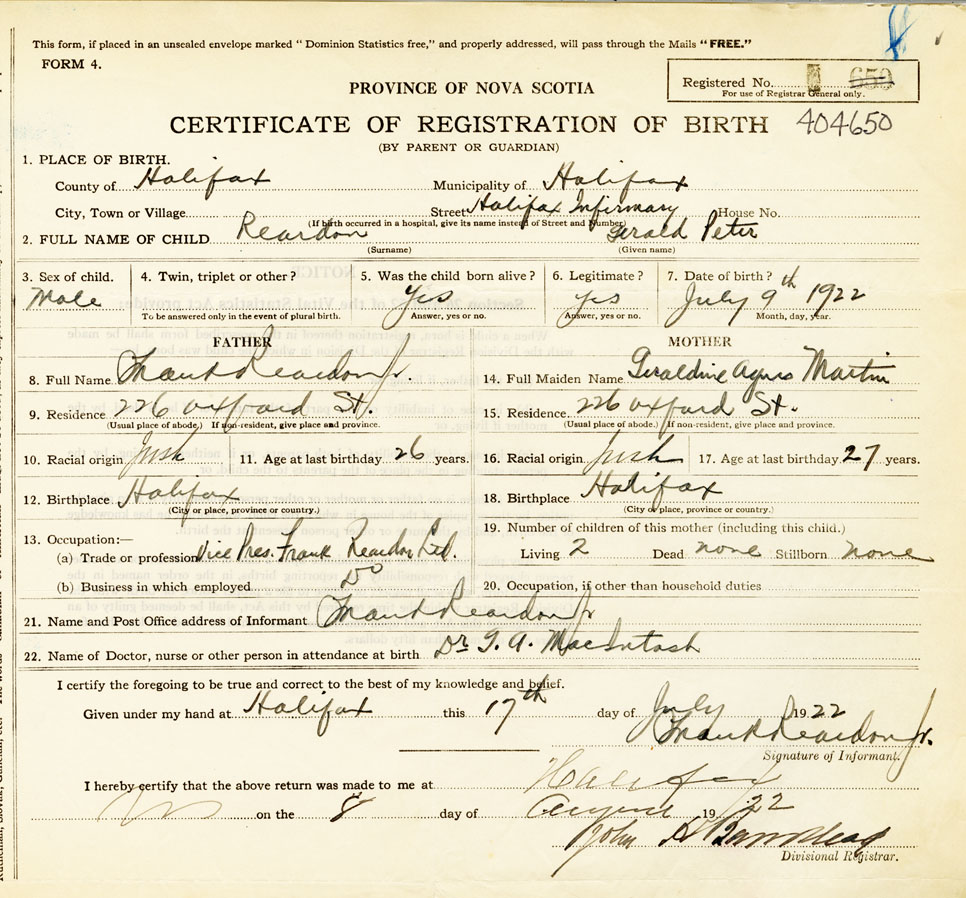 This form, if placed in an unsealed envelope marked "Dominion Statistics free," and properly addressed, will pass through the Mails "FREE."
FORM 4.
PROVINCE OF NOVA SCOTIA
Registered No. 650
For use of Registrar General only.
CERTIFICATE OF REGISTRATION OF BIRTH 404650
(BY PARENT OR GUARDIAN)
1. PLACE OF BIRTH.
County of Halifax Municipality of Halifax
City, Town or Village Street Halifax Infirmary House No.
(If birth occurred in a hospital, give its name instead of Street and Number)
2. FULL NAME OF CHILD Reardon Gerald Peter
(Surname) (Given name)
3. Sex of child. 4. Twin, triplet or other? 5. Was the child born alive? 6. Legitimate? 7. Date of birth?
Male Yes Yes July 9th 1922
To be answered only in the event of plural birth. Answer, yes or no. Answer, yes or no. Month, day, year.
FATHER MOTHER
8. Full Name Frank Reardon Jr. 14. Full Maiden Name Geraldine Agnes Martin
9. Residence 226 Oxford St. 15. Residence 226 Oxford St.
(Usual place of abode.) If non-resident, give place and province. (Usual place of abode.) If non-resident, give place and province.
10. Racial origin Irish 11. Age at last birthday 26 years. 16. Racial origin Irish 17. Age at last birthday 27 years.
12. Birthplace Halifax 18. Birthplace Halifax
(City or place, province or country.) (City or place, province or country.)
13. Occupation:— 19. Number of children of this mother (including this child.)
(a) Trade or profession Vice Pres. Frank Reardon Ltd. Living 2 Dead none Stillborn none
(b) Business in which employed Do 20. Occupation, if other than household duties
21. Name and Post Office address of Informant Frank Reardon Jr
22. Name of Doctor, nurse or other person in attendance at birth Dr G. A. MacIntosh
I certify the foregoing to be true and correct to the best of my knowledge and belief.
Given under my hand at Halifax this 17th day of July 1922
Frank Reardon Jr.
Signature of Informant.
I hereby certify that the above return was made to me at Halifax
on the 8 day of August 1922
John A Barnstead
Divisional Registrar.